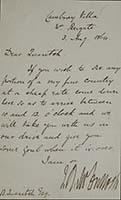 Cranbury Villa
W. Reigate
2. Aug. 18
Dear Quaritch,
If you wish to see any
portion of a very fine country
at a cheap rate come down
here so as to arrive between
10 and 12 o'clock and we
will take you with us in
our drive and give you
some food when it is over.
I am
B. Quaritch Esq.